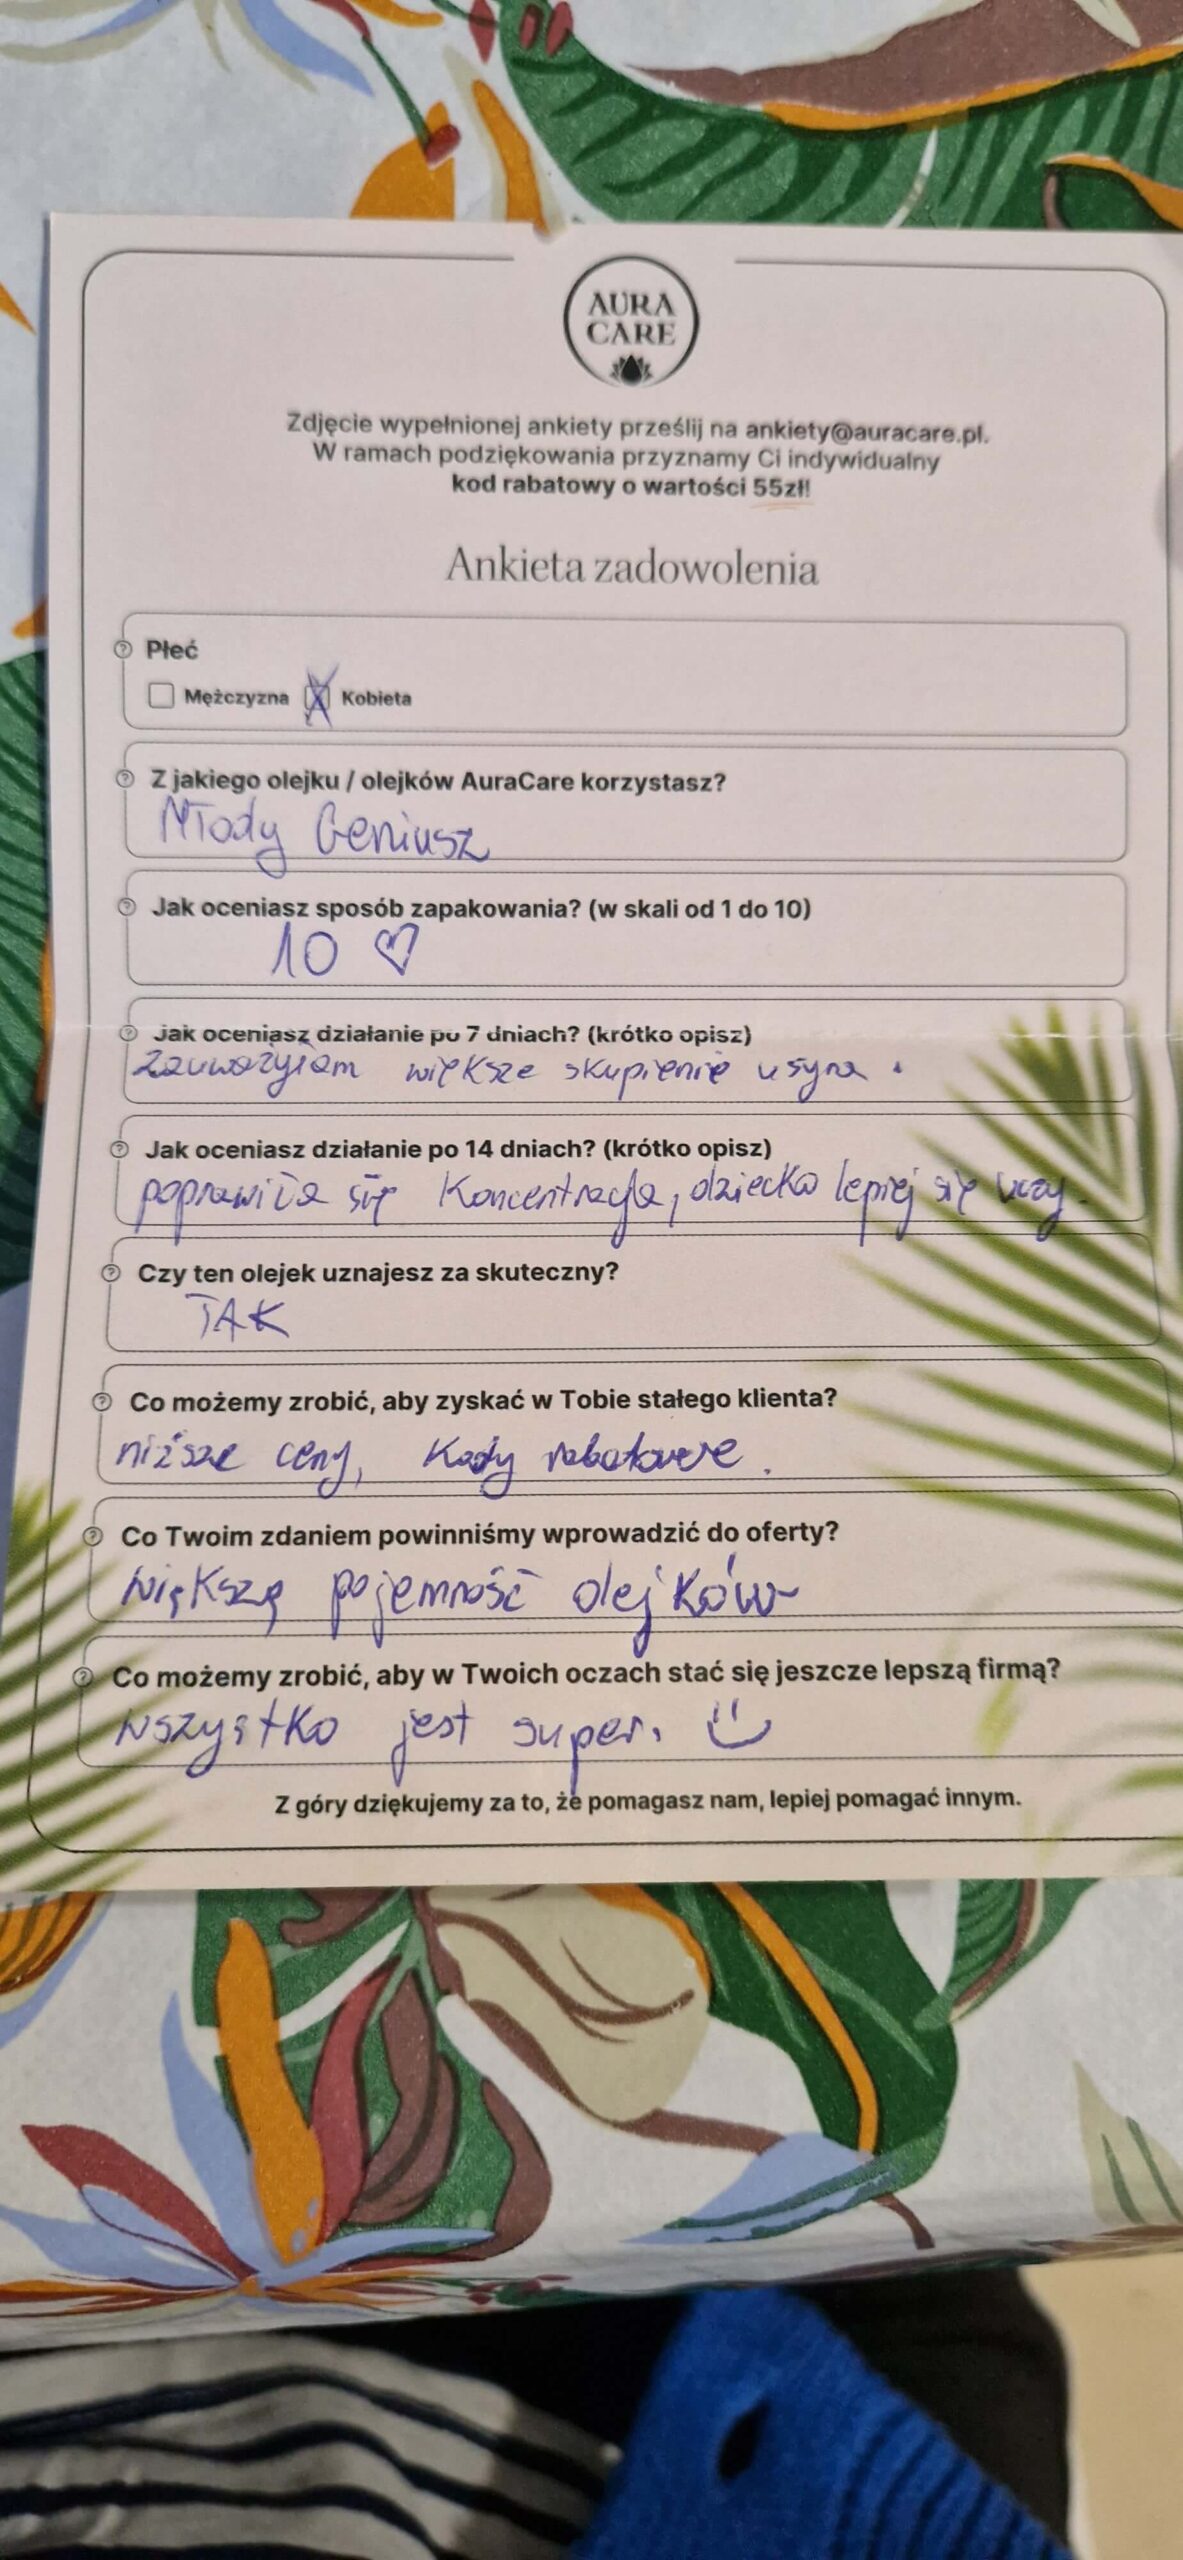 AURA
CARE
Zdjęcie wypełnionej ankiety prześlij na ankiety@auracare.pl.
W ramach podziękowania przyznamy Ci indywidualny
kod rabatowy o wartości 55zł!
Ankieta zadowolenia
Płeć
Mężczyzna X Kobieta
Z jakiego olejku / olejków AuraCare korzystasz?
Młody Geniusz
Jak oceniasz sposób zapakowania? (w skali od 1 do 10)
10 ♡
Jak oceniasz działanie po 7 dniach? (krótko opisz)
Zauważyłam większe skupienie u syna.
Jak oceniasz działanie po 14 dniach? (krótko opisz)
poprawiła się koncentracja, dziecko lepiej się uczy.
Czy ten olejek uznajesz za skuteczny?
TAK
Co możemy zrobić, aby zyskać w Tobie stałego klienta?
niższe ceny, kody rabatowe.
Co Twoim zdaniem powinniśmy wprowadzić do oferty?
większą pojemność olejków
Co możemy zrobić, aby w Twoich oczach stać się jeszcze lepszą firmą?
wszystko jest super. :)
Z góry dziękujemy za to, że pomagasz nam, lepiej pomagać innym.